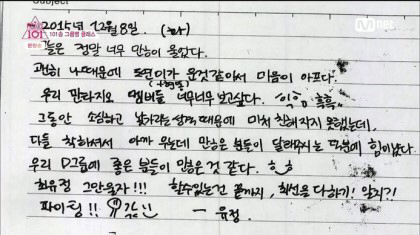 Subject
PRODUCE 101
101송 그룹별 클래스
Mnet
2015년 12월 8일. (화)
오늘은 정말 너무 많이 울었다.
괜히 나때문에 도연이가 운것같아서 마음이 아프다.
우리 판타지오 멤버들 너무너무 보고싶다. 흑흑
그동안 소심하고 낯가리는 성격 때문에 미처 친해지지 못했는데,
다들 착하셔서 아까 우는데 많은 분들이 달래주시는 덕분에 힘이났다.
우리 D그룹에 좋은 분들이 많은것 같다.
최유정 그만울자!!! 할수있는건 끝까지, 최선을 다하기! 알지?!
파이팅!!
- 유정